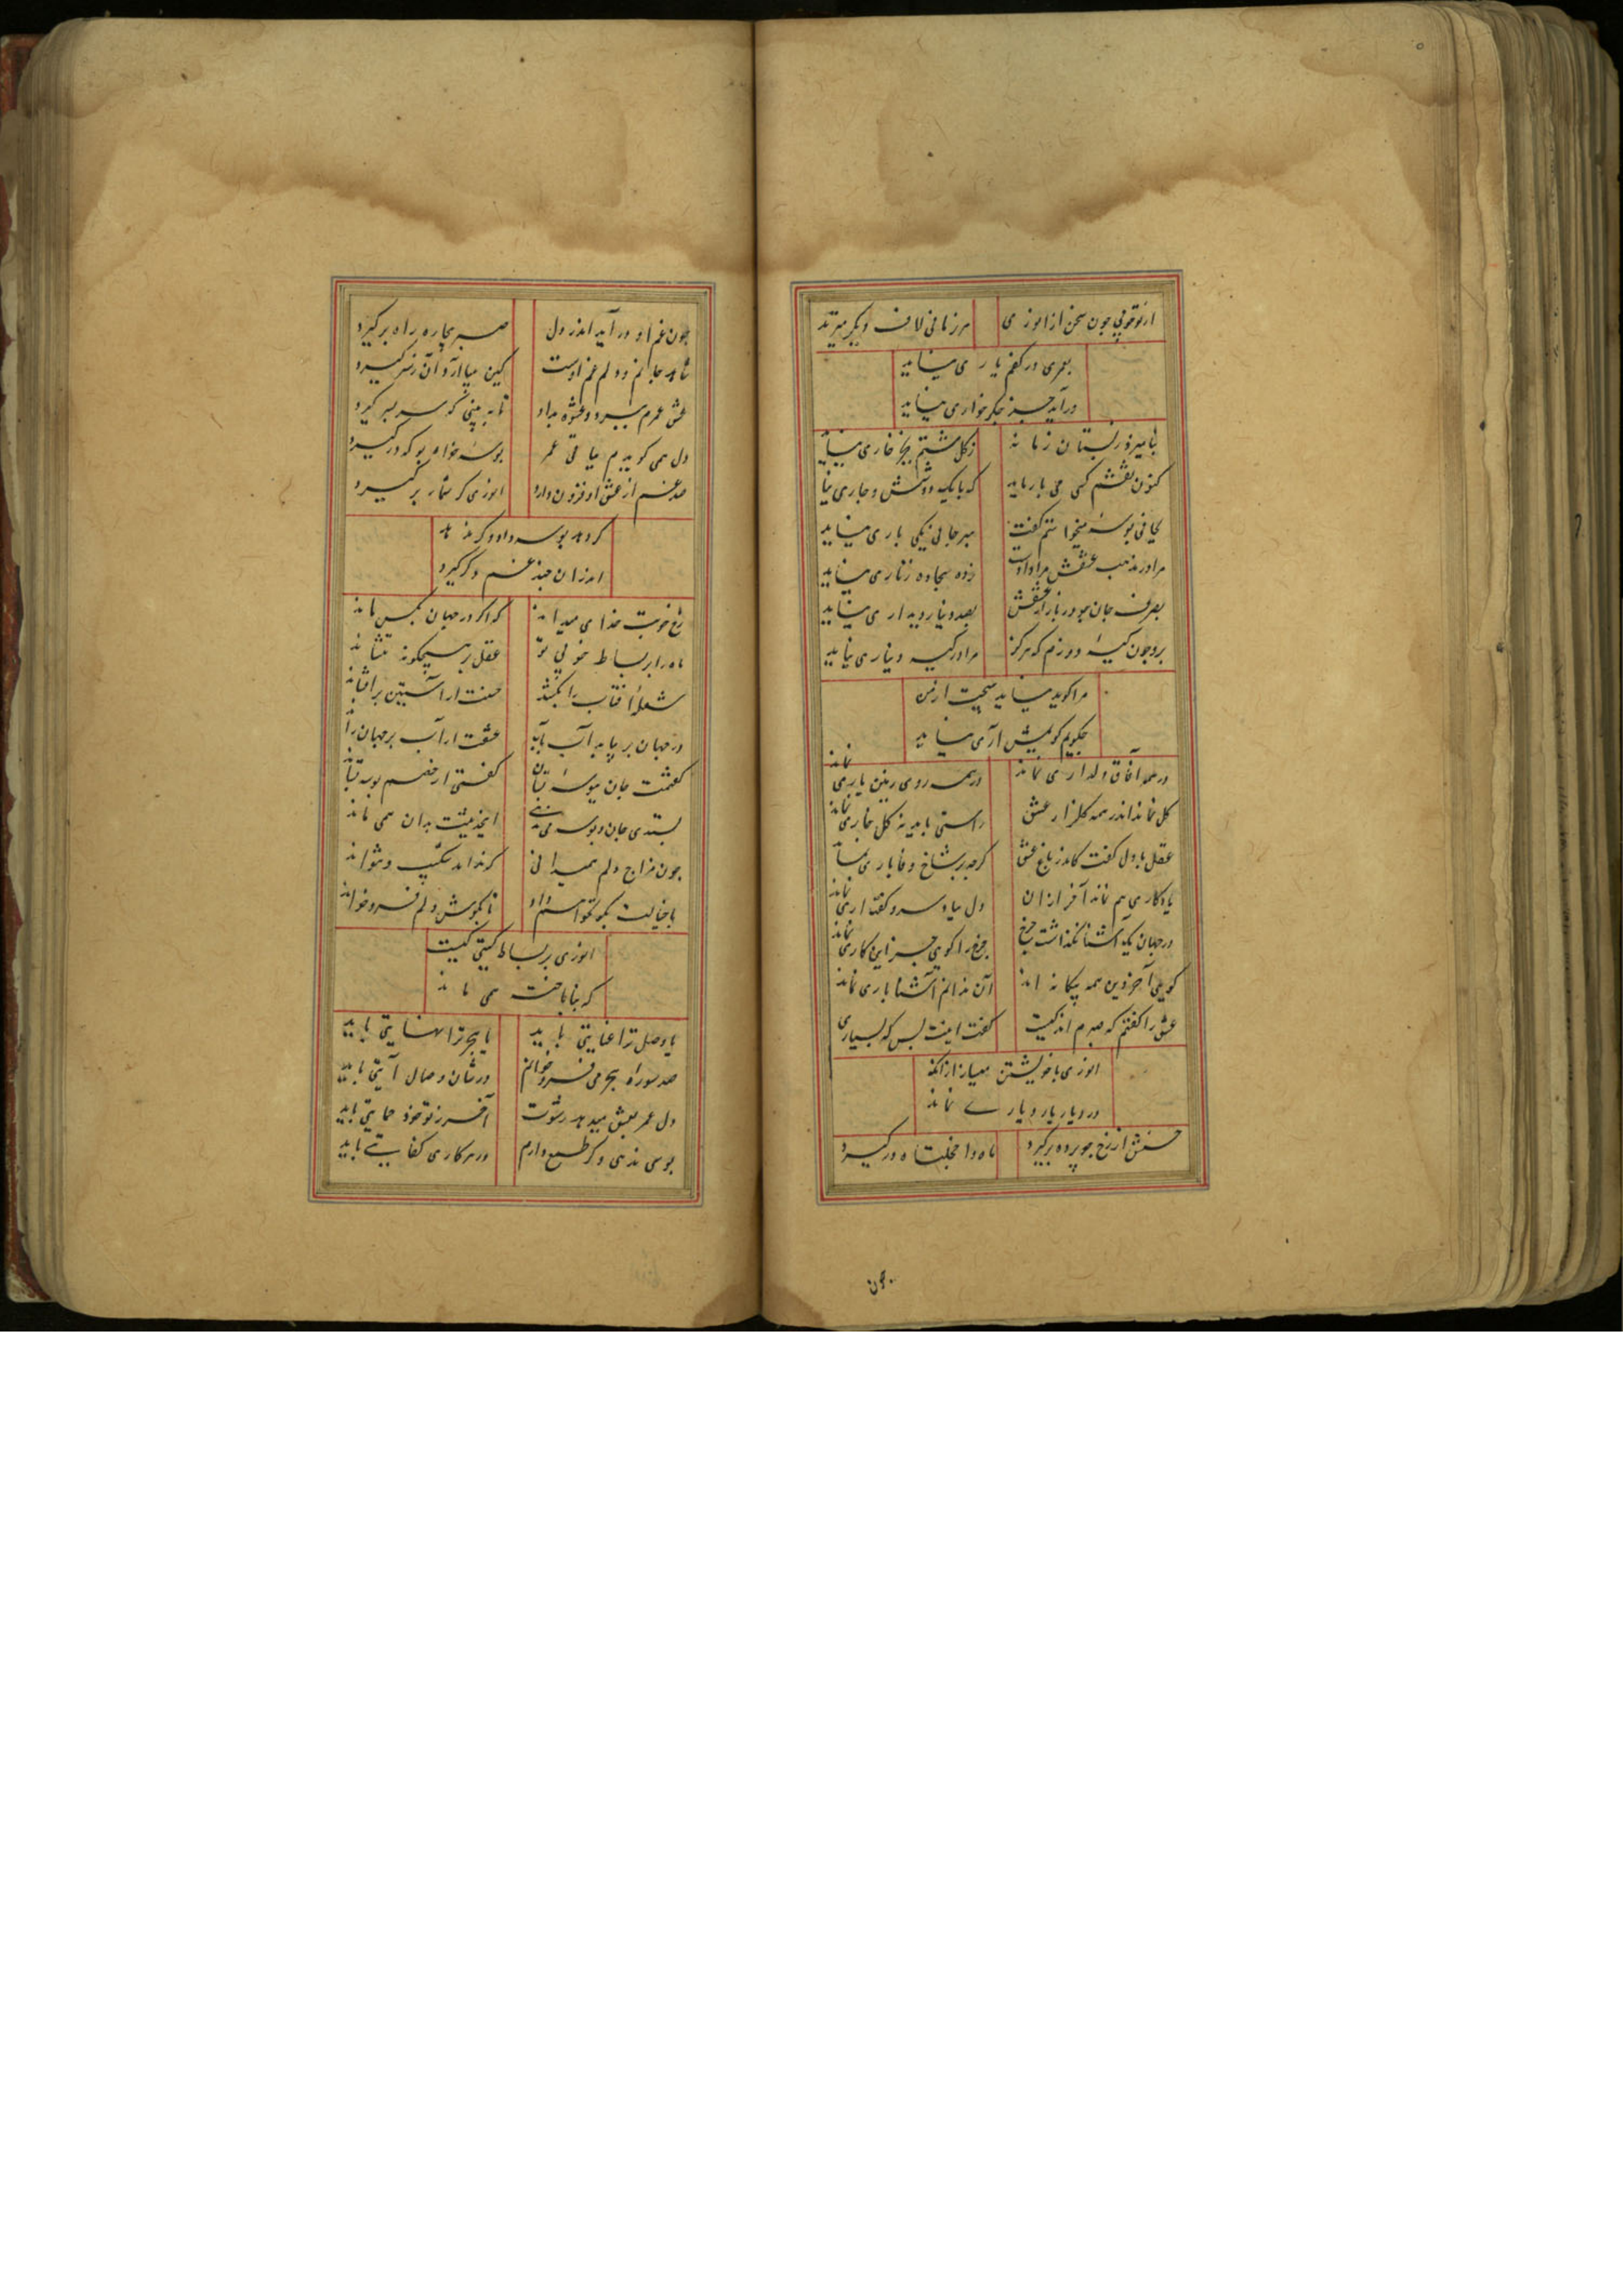 از تو خوبی چون سخن از انوری هر زمانی لاف دیگر میزند
بعمری در کفم یاری نمی‌آید
در آید جز جگرخواری نمی‌آید
نیامیزد ز بستان زمانه ز گل مشتم بجز خاری نمی‌آید
کنون نقشم کمی می باز ماید که با یک دو شش و چاری نمی‌آید
بجانی بوسهٔ میخواستم گفت بهر جانی یکی باری نمی‌آید
مرا در مذهب عشقش مرادات زده سجاده زناری نمی‌آید
بصرف جان چو در بازار عشقش بصد دینار دیداری نمی‌آید
برو چون کیسهٔ دوزم که هرگز مرا در کیسه دیناری نمی‌آید
مرا گوید نمی‌آید هیچت از من
چگویم گویمش آری نمی‌آید
در همه آفاق دلداری نماند در همه روی زمین یاری نماند
گل نماند اندر همه گلزار عشق راستی باید نه گل خاری نماند
عقل با دل گفت کاندر باغ عشق گرچه بر شاخ وفا باری نماند
یادگاری هم نماند آخر از آن دل بیاد سرد گفت آری نماند
در جهان یک آشنا نگذاشت چرخ چرخ را گویی جز این کاری نماند
گویی آخر این همه بیگانه‌اند آن ندانم آشنا باری نماند
عشق را گفتم که صبرم اندکیست گفت اینت بس که بسیاری
انوری با خویشتن میساز از آنک
در دیار یار دیاری نماند
حسنش از رخ چو پرده برگیرد ماه را خجلت ماه درگیرد
چون غم او در آید اندر دل صبر بیچاره راه برگیرد
شاهد جانم و دلم غم اوست کین بیازارد آن ز سر گیرد
عشق عمرم ببرد و عشوه بداد تا به بینی که سر بسر گیرد
دل همی گویدم بباقی عمر بوسه خواه بو که درگیرد
صد غم از عشق او فزون دارد انوری گر شمار برگیرد
گر دهد بوسه داد و گر ندهد
اندر آن چند غم دگر گیرد
رخ خوبت خدای میداند که اگر در جهان بکس ماند
ماه را بر بساط خوبی تو عقل بر هیچگونه ننشاند
شعلهٔ آفتاب را بکشد حسنت ار آستین برافشاند
در جهان بر نیاید آب بآب عشقت ار آب بر جهان راند
گفتمت جان ببوسهٔ بستان گفتی ار خصم بوسه بستاند
بستدی جان و بوسه می ندهی اینحدیثت بدان همی ماند
چون مزاج دلم همیدانی کز تو اندر شکیب نتواند
با خیالت بگو نخواهم داد تا بگوش دلم فرو خواند
انوری بر بساط گیتی کیست
که نه ناباخته همی ماند
یا وصل ترا عنایتی باید یا هجر ترا نهایتی باید
صد سوره هجر می فرو خوانم در شأن وصال آیتی باید
دل عمر بعشق میدهد رشوت آخر ز تو خود حمایتی باید
بوسی ندهی و گر طمع دارم در هر کاری کفایتی باید